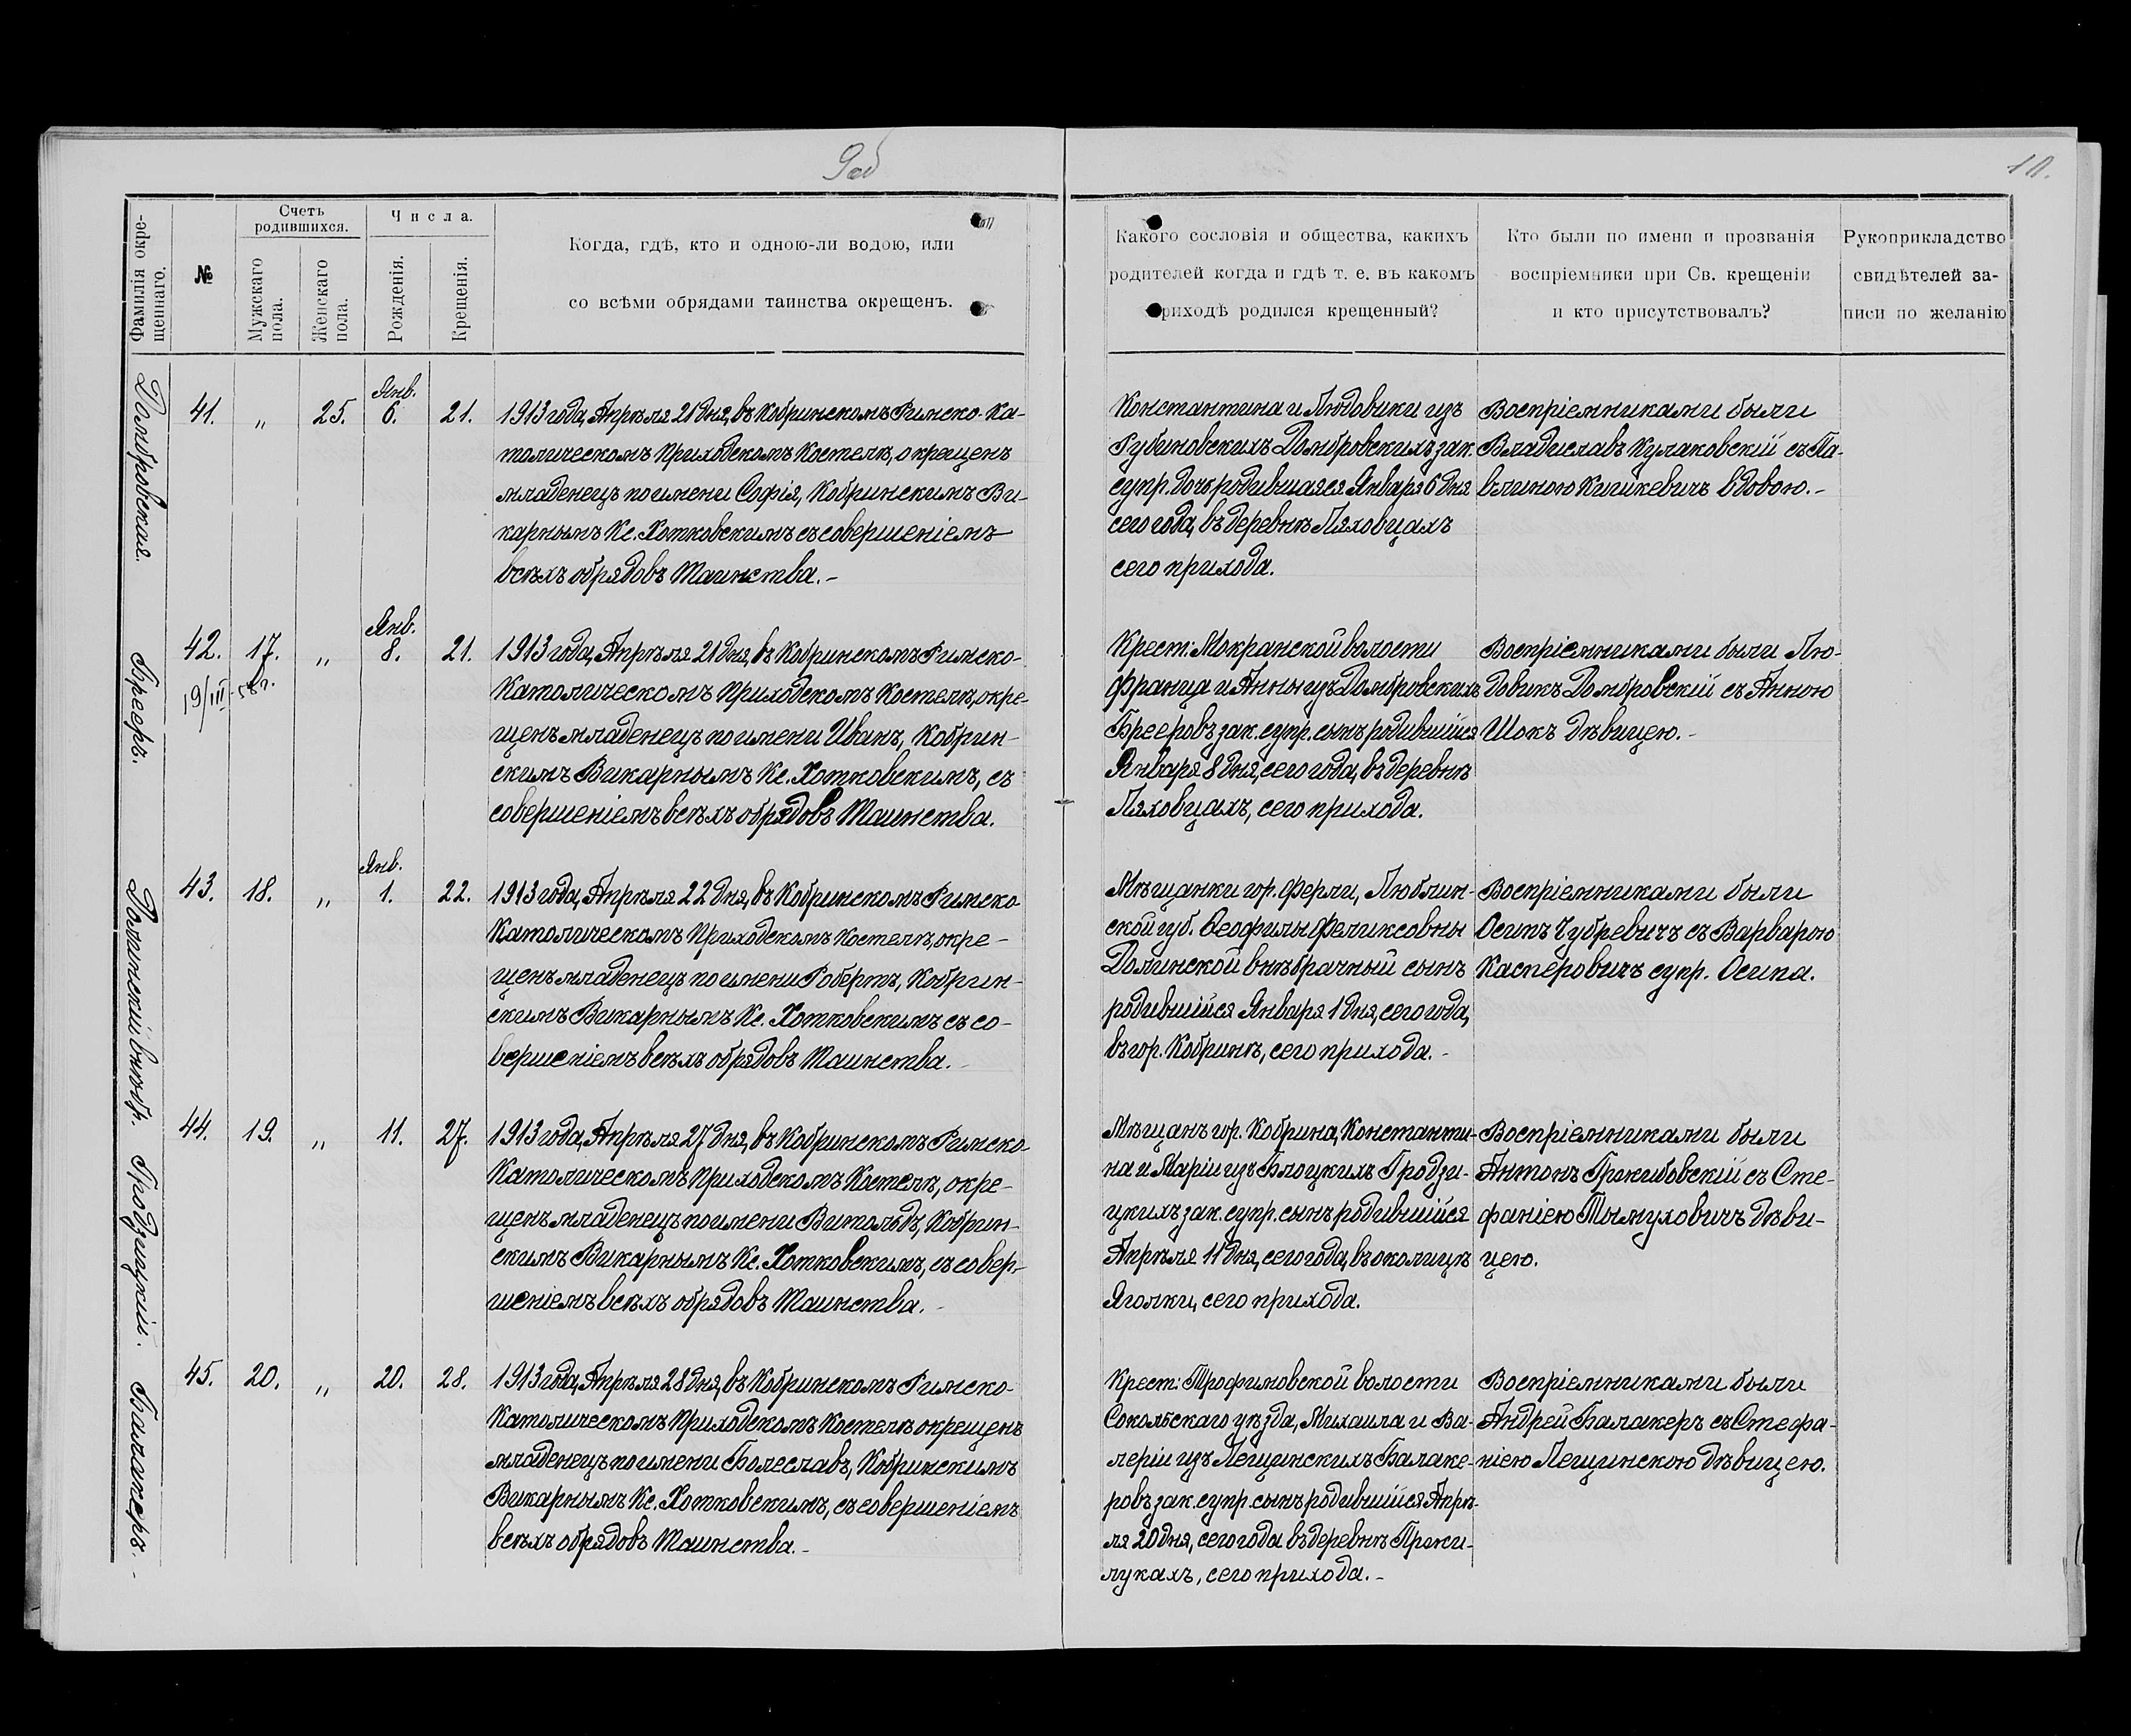 10.
Фамилія окре-
щеннаго.
№
Счетъ
родившихся.
Мужскаго
пола.
Женскаго
пола.
Числа.
Рожденія.
Крещенія.
Когда, гдѣ, кто и одною-ли водою, или
со всѣми обрядами таинства окрещенъ.
Какого сословія и общества, какихъ
родителей когда и гдѣ т. е. въ какомъ
приходѣ родился крещенный?
Кто были по имени и прозванія
воспріемники при Св. крещеніи
и кто присутствовалъ?
Рукоприкладство
свидѣтелей за-
писи по желанію
Домбровская.
41. „ 25. Янв. 6. 21.
1913 года, Апрѣля 21 дня, въ Кобринскомъ Римско-Ка-
толическомъ Приходскомъ Костелѣ, окрещенъ
младенецъ по имени Софія, Кобринскимъ Ви-
карнымъ Кс. Хотковскимъ съ совершеніемъ
всѣхъ обрядовъ Таинства.-
Константина и Людовики изъ
Губиновскихъ Домбровскихъ зак.
супр. дочь родившаяся Января 6 дня
сего года, въ деревнѣ Ляховцахъ
сего прихода.
Воспріемниками были
Владиславъ Кулаковскій съ Па-
влиною Кишкевичъ вдовою.-
Брееръ.
42. 17. „ Янв. 8. 21.
19/III
1913 года, Апрѣля 21 дня, въ Кобринскомъ Римско-
Католическомъ Приходскомъ Костелѣ, окре-
щенъ младенецъ по имени Иванъ, Кобрин-
скимъ Викарнымъ Кс. Хотковскимъ, съ
совершеніемъ всѣхъ обрядовъ Таинства.
Крест: Мокранской волости
Франца и Анны изъ Домбровскихъ
Брееровъ зак. супр. сынъ родившійся
Января 8 дня, сего года, въ деревнѣ
Ляховцахъ, сего прихода.
Воспріемниками были Лю-
довикъ Домбровскій съ Анною
Шокъ дѣвицею.-
Долинскій внѣбр.
43. 18. „ Янв. 1. 22.
1913 года, Апрѣля 22 дня, въ Кобринскомъ Римско
Католическомъ Приходскомъ Костелѣ, окре-
щенъ младенецъ по имени Робертъ, Кобрин-
скимъ Викарнымъ Кс. Хотковскимъ съ со-
вершеніемъ всѣхъ обрядовъ Таинства.-
Мѣщанки гор. Ферли, Люблин-
ской губ. Ѳеофилы Феликсовны
Долинской внѣбрачный сынъ
родившійся Января 1 дня, сего года,
въ гор. Кобринѣ, сего прихода.-
Воспріемниками были
Осипъ Чубревичъ съ Варварою
Касперовичъ супр. Осипа.
Гродзицкій.
44. 19. „ 11. 27.
1913 года, Апрѣля 27 дня, въ Кобринскомъ Римско-
Католическомъ Приходскомъ Костелѣ, окре-
щенъ младенецъ по имени Витольдъ, Кобрин-
скимъ Викарнымъ Кс. Хотковскимъ, съ совер-
шеніемъ всѣхъ обрядовъ Таинства.-
Мѣщанъ гор. Кобрина, Константи-
на и Маріи изъ Блоцкихъ Гродзи-
цкихъ зак. супр. сынъ родившійся
Апрѣля 11 дня, сего года, въ околицѣ
Яголки, сего прихода.
Воспріемниками были
Антонъ Гржибовскій съ Сте-
фаніею Тымуховичъ дѣви-
цею.
Балакеръ.-
45. 20. „ 20. 28.
1913 года, Апрѣля 28 дня, въ Кобринскомъ Римско-
Католическомъ Приходскомъ Костелѣ окрещенъ
младенецъ по имени Болеславъ, Кобринскимъ
Викарнымъ Кс. Хотковскимъ, съ совершеніемъ
всѣхъ обрядовъ Таинства.-
Крест: Трофимовской волости
Сокольскаго уѣзда, Михаила и Ва-
леріи изъ Лещинскихъ Балаке-
ровъ зак. супр. сынъ родившійся Апрѣ-
ля 20 дня, сего года въ деревнѣ Пржи-
лукахъ, сего прихода.-
Воспріемниками были
Андрей Балакеръ съ Стефа-
ніею Лещинскою дѣвицею.